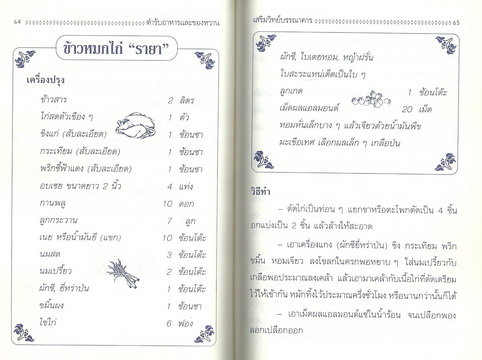 64
ตำรับอาหารและของหวาน
ข้าวหมกไก่ "รายา"
เครื่องปรุง
ข้าวสาร 2 ลิตร
ไก่สดตัวเขื่อง ๆ 1 ตัว
ขิงแก่ (สับละเอียด) 1 ช้อนชา
กระเทียม (สับละเอียด) 1 ช้อนชา
พริกชี้ฟ้าแดง (สับละเอียด) 1 ช้อนชา
อบเชย ขนาดยาว 2 นิ้ว 4 แท่ง
กานพลู 10 ดอก
ลูกกระวาน 7 ลูก
เนย หรือน้ำมันยี (แขก) 10 ช้อนโต๊ะ
นมสด 3 ช้อนโต๊ะ
นมเปรี้ยว 2 ช้อนโต๊ะ
ผักชี, ยี่หร่าป่น 1 ช้อนโต๊ะ
ขมิ้นผง 1 ช้อนชา
ไข่ไก่ 6 ฟอง
เสริมวิทย์บรรณาคาร
65
ผักชี, ใบเตยหอม, หญ้าฝรั่น
ใบสะระแหน่เด็ดเป็นใบ ๆ
ลูกเกด 1 ช้อนโต๊ะ
เม็ดผลแอลมอนด์ 20 เม็ด
หอมหั่นเล็กบาง ๆ แล้วเจียวด้วยน้ำมันพืช
มะเขือเทศ เลือกผลเล็ก ๆ เกลือป่น
วิธีทำ
– ตัดไก่เป็นท่อน ๆ แยกขาหรือตะโพกตัดเป็น 4 ชิ้น
อกแบ่งเป็น 2 ชิ้น แล้วล้างให้สะอาด
– เอาเครื่องแกง (ผักชียี่หร่าป่น) ขิง กระเทียม พริก
ขมิ้น หอมเจียว ลงโขลกในครกพอหยาบ ๆ ใส่นมเปรี้ยวกับ
เกลือพอประมาณลงเคล้า แล้วเอามาเคล้ากับเนื้อไก่ที่ตัดเตรียม
ไว้ให้เข้ากัน หมักทิ้งไว้ประมาณครึ่งชั่วโมง หรือนานกว่านั้นก็ได้
– เอาเม็ดผลแอลมอนด์แช่ในน้ำร้อน จนเปลือกพอง
ลอกเปลือกออก